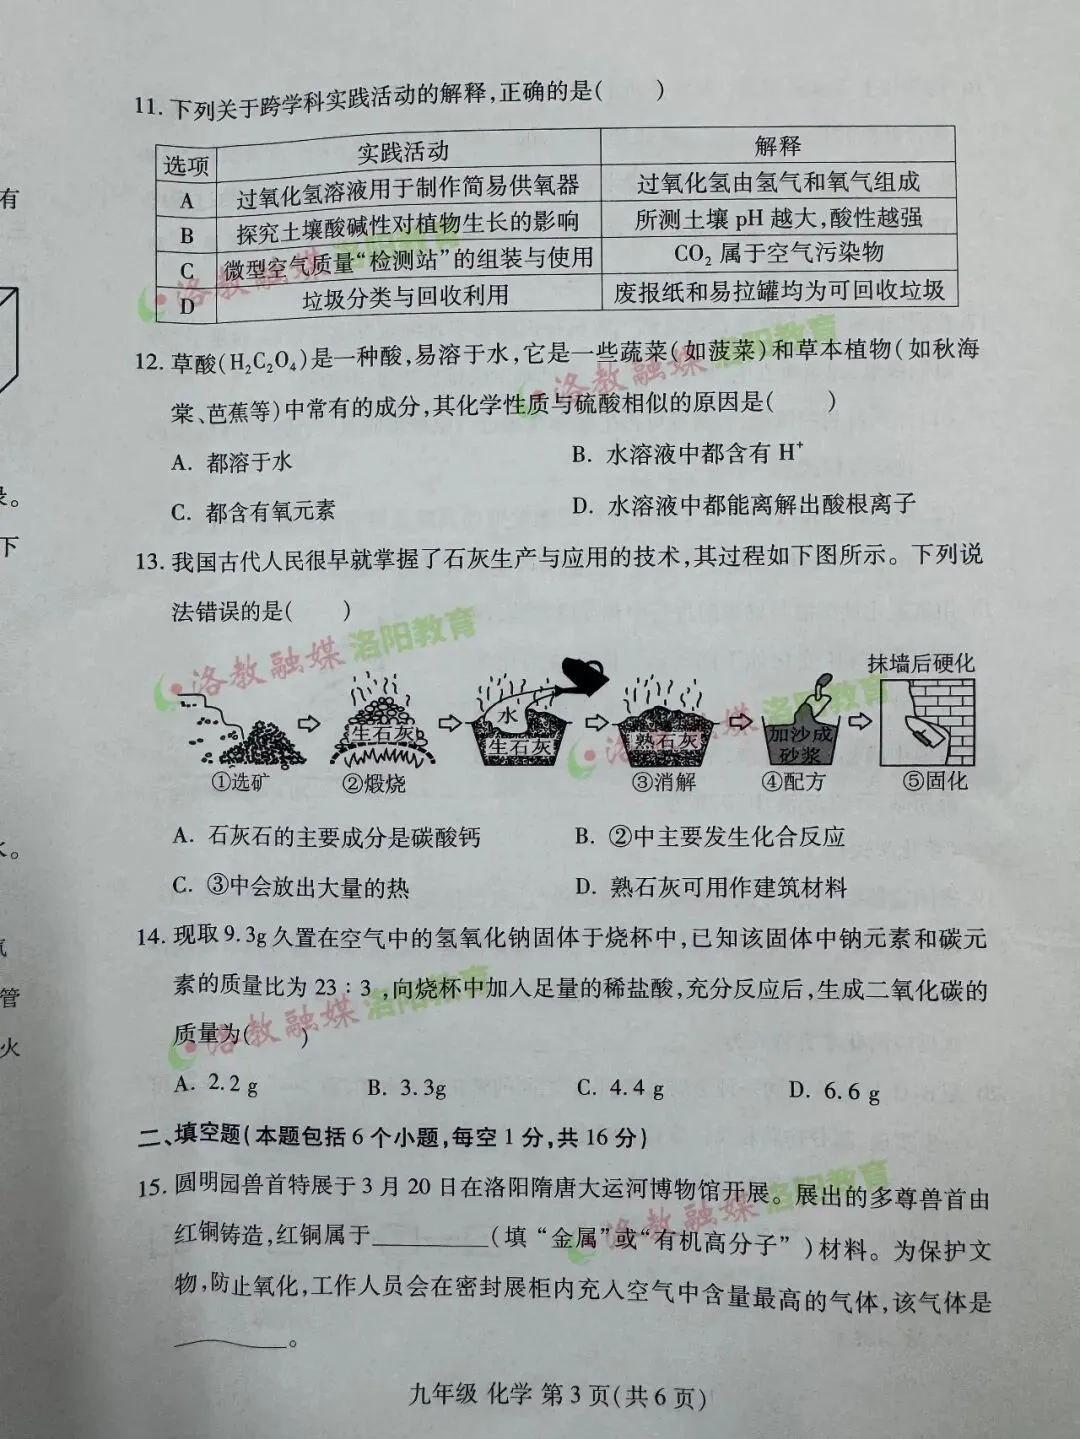 11. 下列关于跨学科实践活动的解释,正确的是(  )
选项 实践活动 解释
A 过氧化氢溶液用于制作简易供氧器 过氧化氢由氢气和氧气组成
B 探究土壤酸碱性对植物生长的影响 所测土壤 pH 越大,酸性越强
C 微型空气质量“检测站”的组装与使用 CO₂ 属于空气污染物
D 垃圾分类与回收利用 废报纸和易拉罐均为可回收垃圾
洛教融媒 洛阳教育
12. 草酸(H₂C₂O₄)是一种酸,易溶于水,它是一些蔬菜(如菠菜)和草本植物(如秋海
棠、芭蕉等)中常有的成分,其化学性质与硫酸相似的原因是(  )
洛教融媒 洛阳教育
A. 都溶于水 B. 水溶液中都含有 H⁺
C. 都含有氧元素 D. 水溶液中都能离解出酸根离子
13. 我国古代人民很早就掌握了石灰生产与应用的技术,其过程如下图所示。下列说
法错误的是(  )
洛教融媒 洛阳教育
抹墙后硬化
洛教融媒 洛阳教育
生石灰 水 生石灰 熟石灰 加沙成
砂浆
①选矿 ②煅烧 ③消解 ④配方 ⑤固化
A. 石灰石的主要成分是碳酸钙 B. ②中主要发生化合反应
C. ③中会放出大量的热 D. 熟石灰可用作建筑材料
14. 现取 9.3g 久置在空气中的氢氧化钠固体于烧杯中,已知该固体中钠元素和碳元
素的质量比为 23∶3 ,向烧杯中加入足量的稀盐酸,充分反应后,生成二氧化碳的
质量为(  )
洛教融媒 洛阳教育
A. 2.2 g B. 3.3g C. 4.4 g D. 6.6 g
二、填空题(本题包括 6 个小题,每空 1 分,共 16 分)
15. 圆明园兽首特展于 3 月 20 日在洛阳隋唐大运河博物馆开展。展出的多尊兽首由
红铜铸造,红铜属于________(填“金属”或“有机高分子”)材料。为保护文
洛教融媒 洛阳教育
物,防止氧化,工作人员会在密封展柜内充入空气中含量最高的气体,该气体是
________。
九年级 化学 第 3 页(共 6 页)
有
。
下
。
管
火